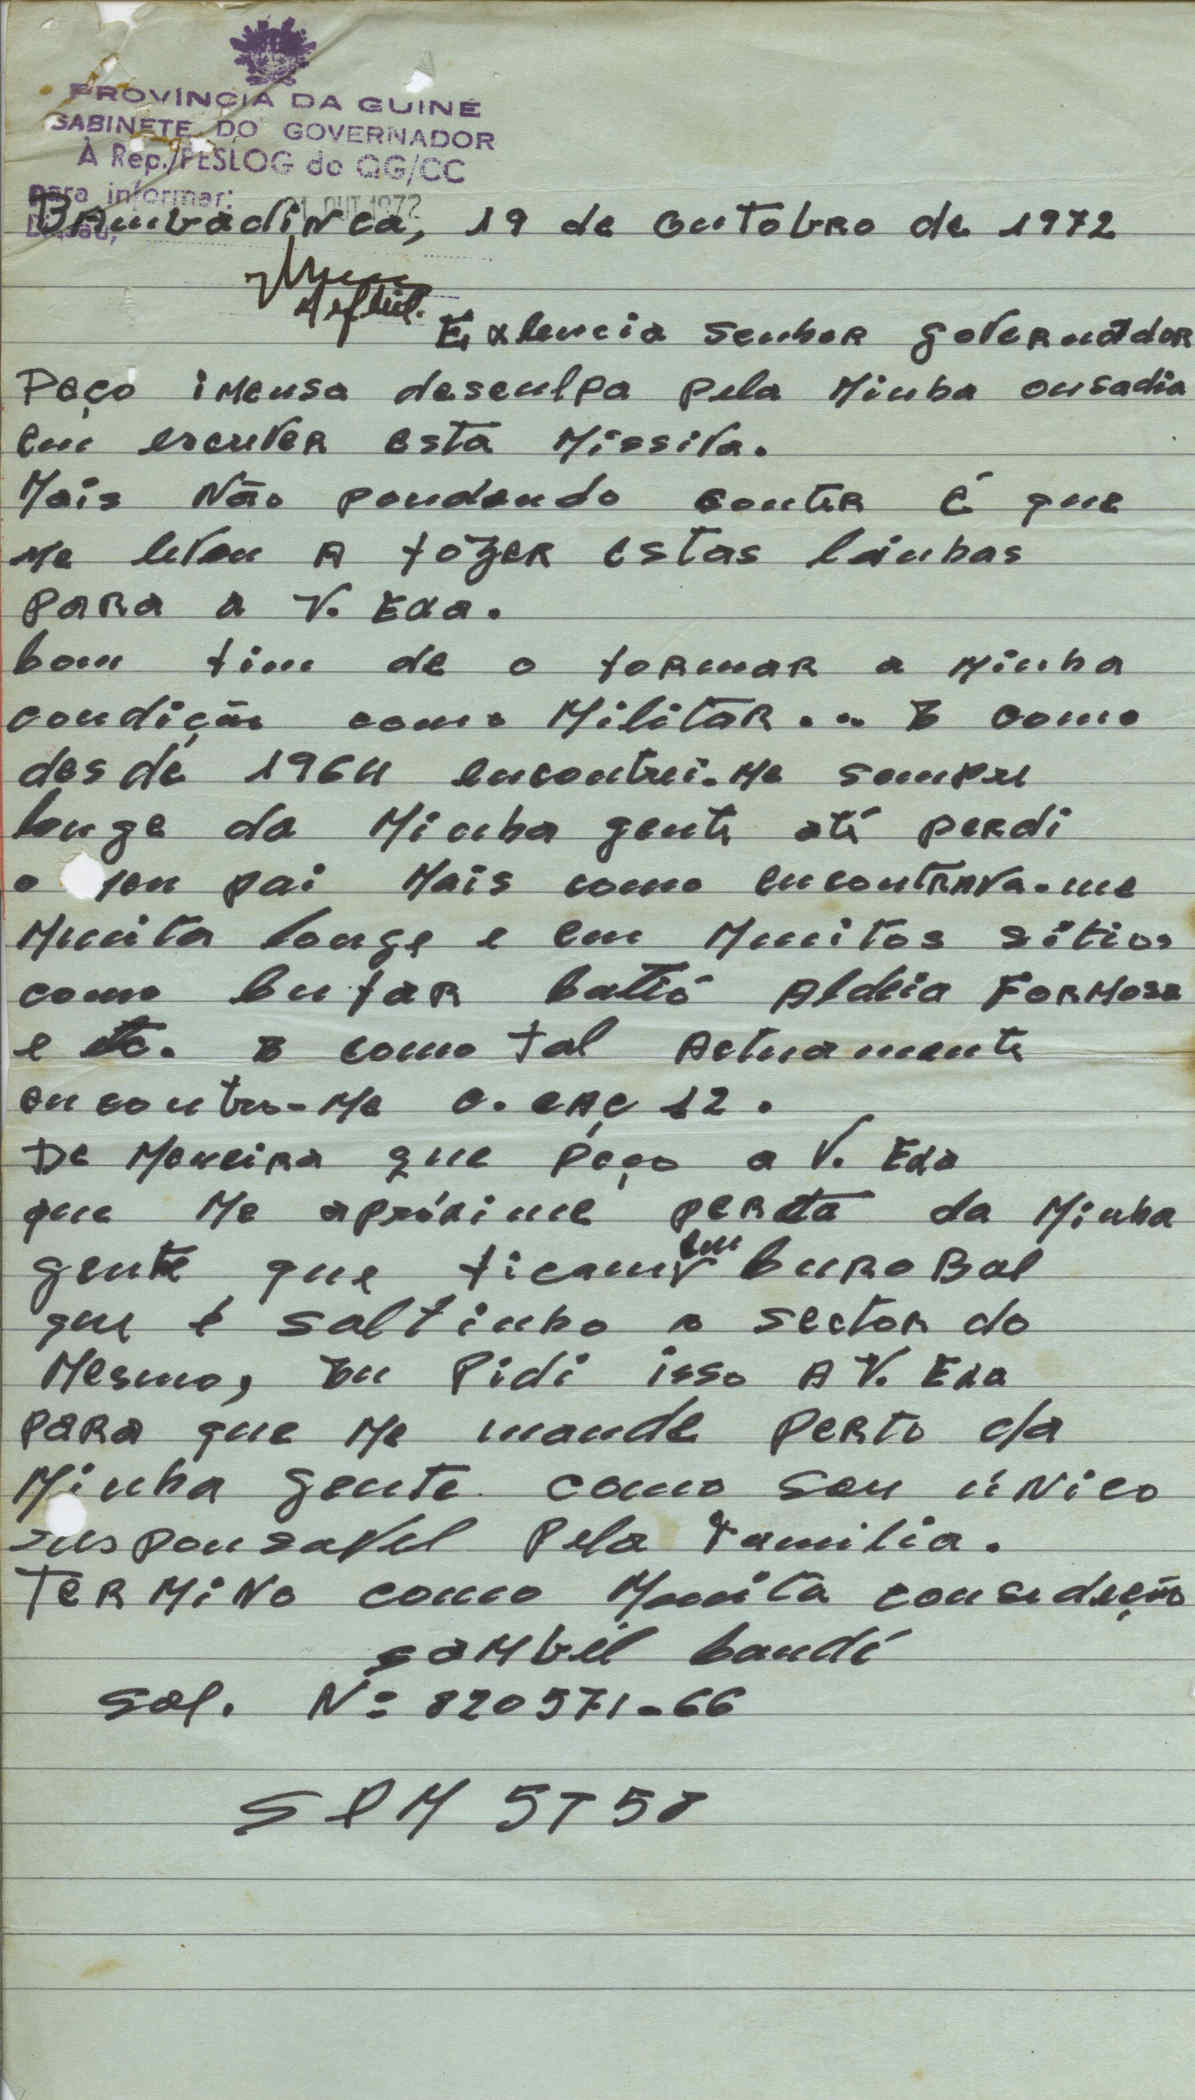 PROVÍNCIA DA GUINÉ
GABINETE DO GOVERNADOR
À Rep./PESLOG do QG/CC
para informar:
21 OUT 1972
Bambadinca, 19 de outobro de 1972
Exlencia senhor governador
Peço imensa desculpa pela Minha ousadia
em escrever esta Missiva.
Mais Não poudendo conter é que
me levou A fazer estas linhas
para a V. Exa.
bom fim de o formar a Minha
condição como Militar... E como
desde 1964 encontrei-me sempre
longe da Minha gente até perdi
o meu pai Mais como encontrava-me
Muita longe e em Muitos sítios
como bufar batió Aldeia Formosa
e etc. E como tal Actuamente
encontro-me C. CAÇ 12.
De Moneira que peço a V. Exa
que Me apróxime perto da Minha
gente que ficam em buroBal
que é saltinho o sector do
Mesmo, Eu Pidi isso A V. Exa
para que Me mande perto da
Minha gente como seu único
responsavel Pela familia.
TERMiNo como Muita consedração
sambél baudé
Sol. Nº 820571-66
SPM 5758